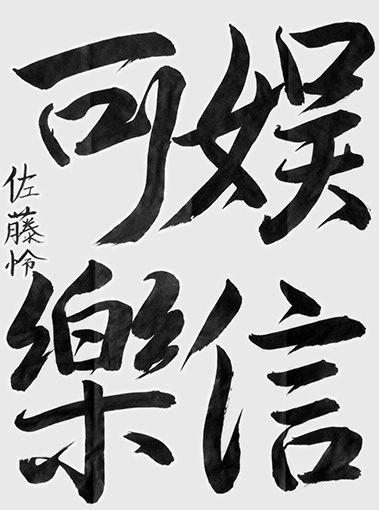 娯信
可樂
佐藤怜